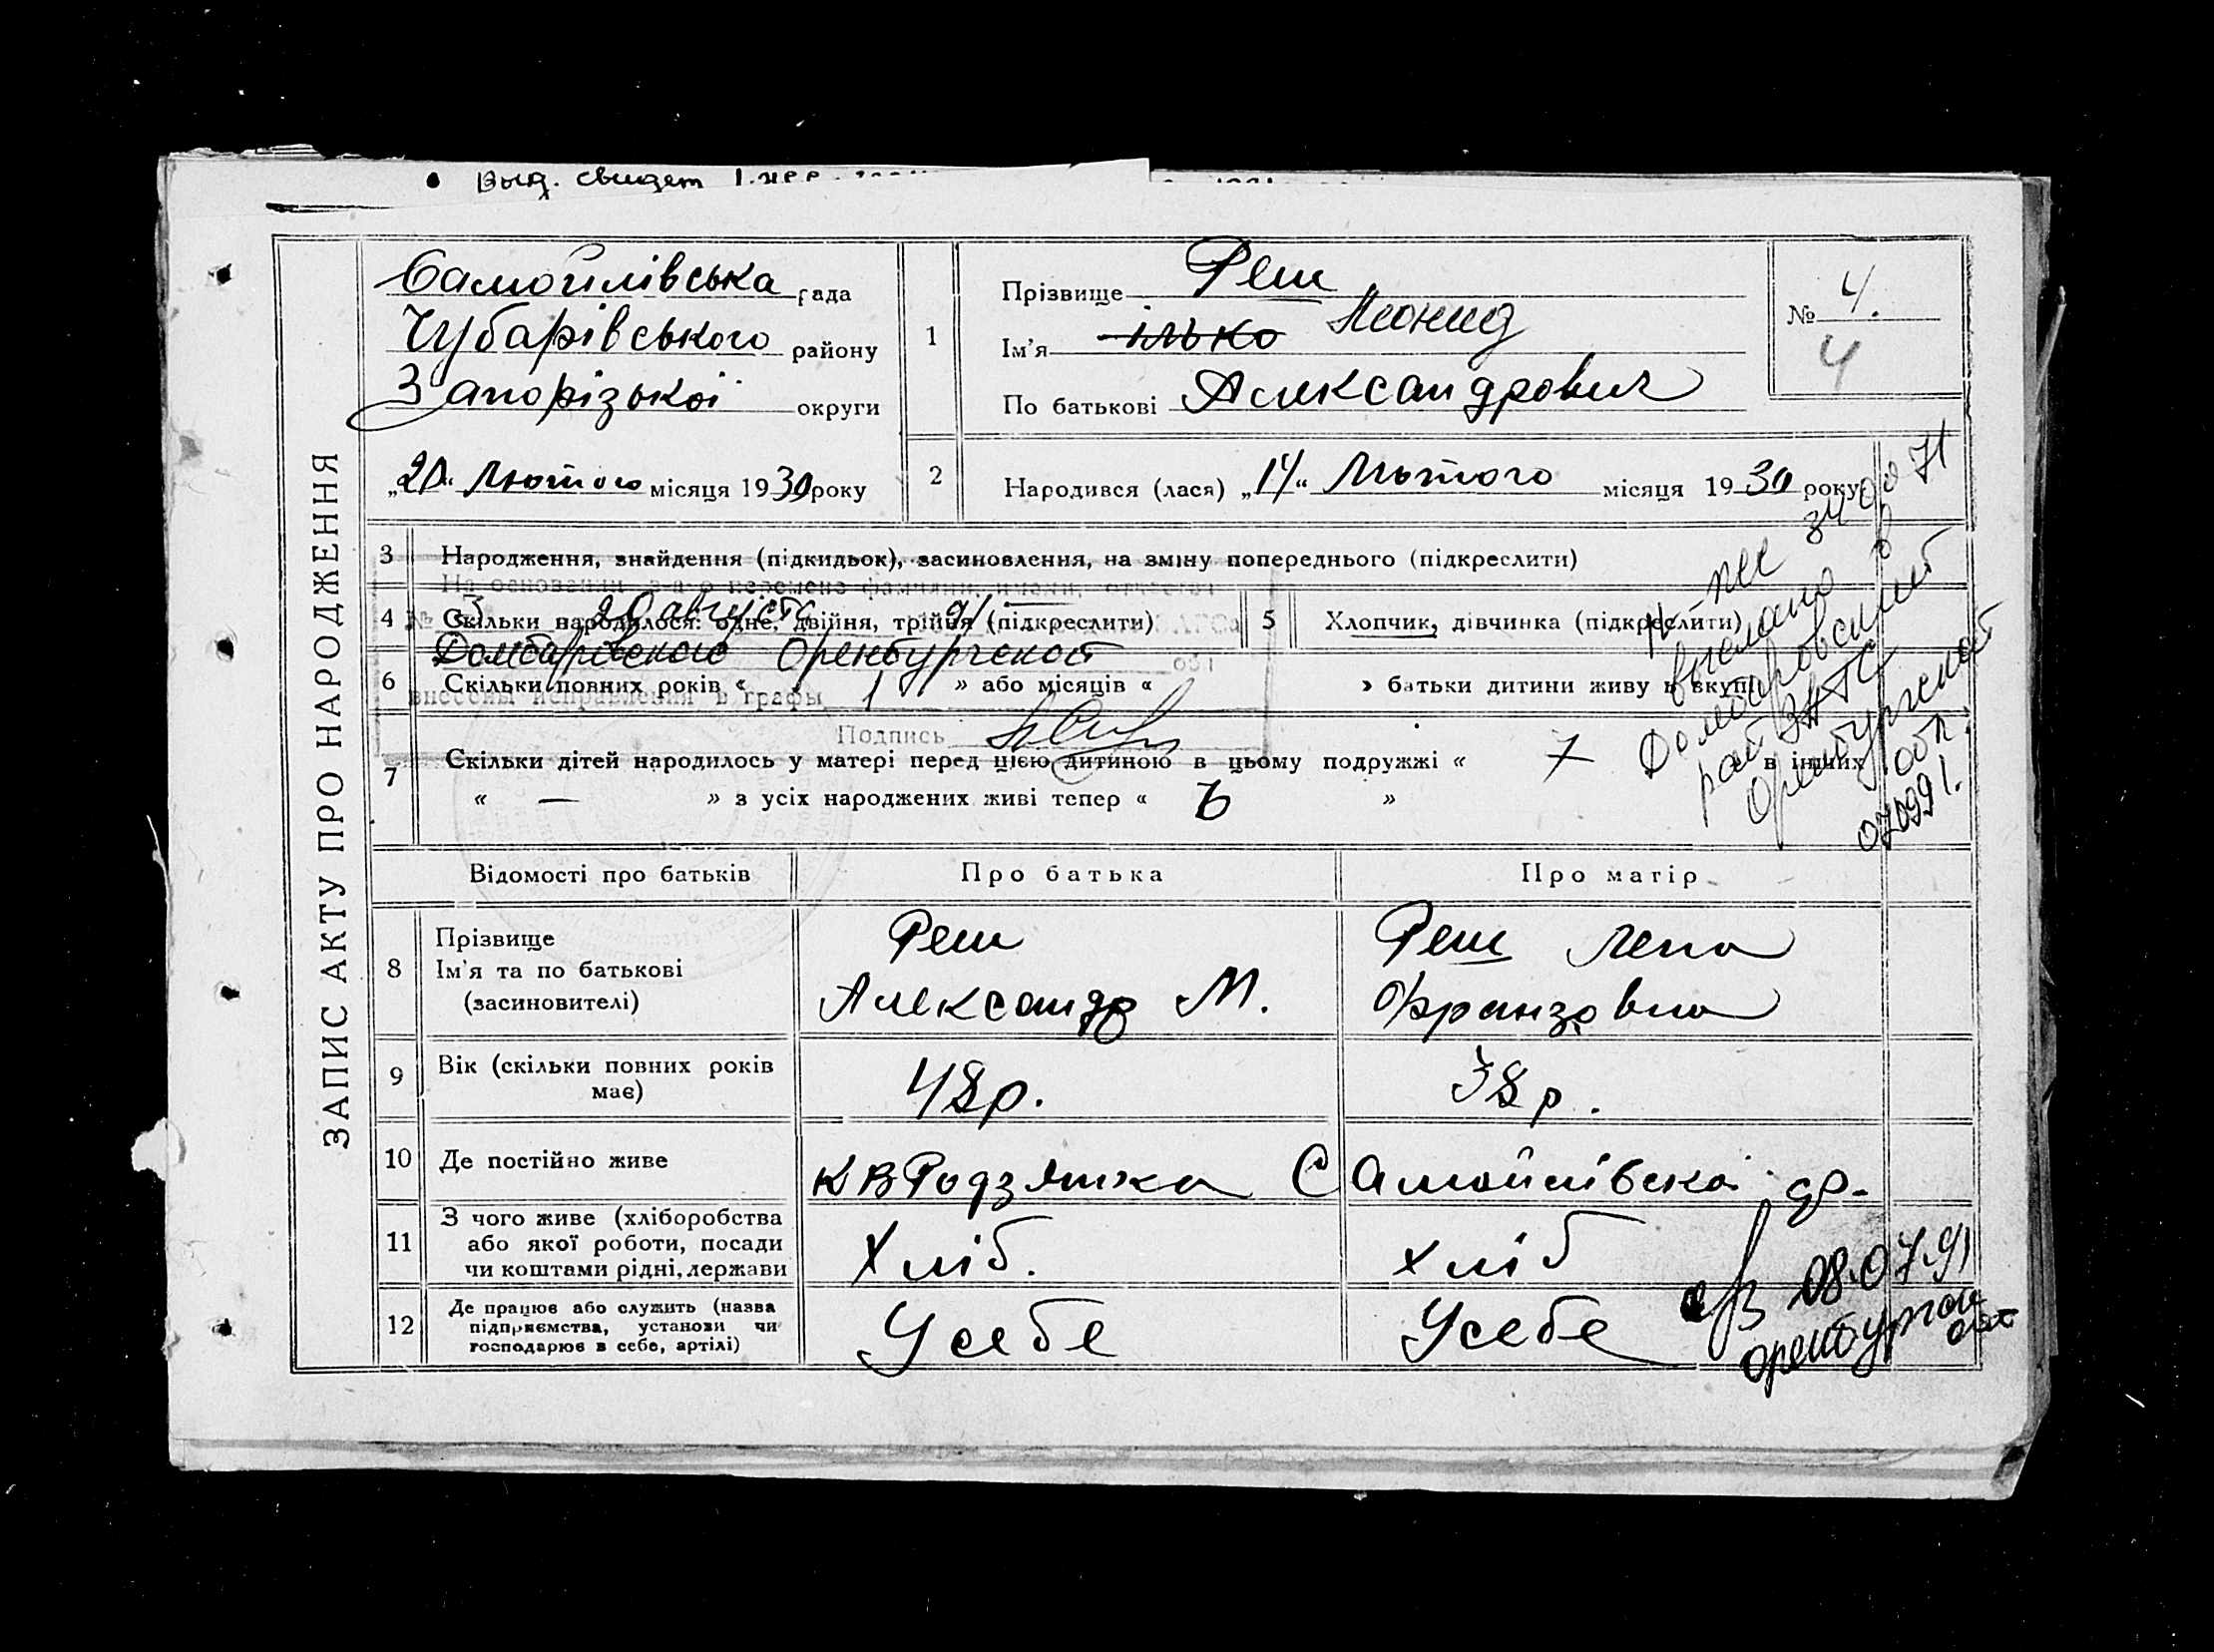 Выд. свидет
ЗАПИС АКТУ ПРО НАРОДЖЕННЯ
Самойлівська рада
Чубарівського району
Запорізької округи
„20“ Лютого місяця 1930 року
1
Прізвище Реш
Ім'я ілько Леонид
По батькові Александрович
№ 4.
4
2
Народився (лася) „14“ Лютого місяця 1930 року
3 Народження, знайдення (підкидьок), засиновлення, на зміну попереднього (підкреслити)
На основании з-а о перемене фамилии, имени, отчества
4 Скільки народилося: одне, двійня, трійня (підкреслити)
20 августа 91 ЗАГСа
5 Хлопчик, дівчинка (підкреслити)
Домбаровского Оренбургской обл
6 Скільки повних років « » або місяців « » батьки дитини живуть вкупі
внесены исправления в графы 1
Подпись
7 Скільки дітей народилось у матері перед цією дитиною в цьому подружжі « 7 в інших
« — » з усіх народжених живі тепер « 6 »
выслано в
Домбаровский
рай ЗАГС
Оренбургской
обл.
070991.
Відомості про батьків Про батька Про матір
8 Прізвище
Ім'я та по батькові
(засиновителі)
Реш
Александр М.
Реш Лена
Франзовна
9 Вік (скільки повних років має)
48р.
38р.
10 Де постійно живе
Родзянка Самойлівскої
11 З чого живе (хліборобства
або якої роботи, посади
чи коштами рідні, держави
Хліб.
Хліб
12 Де працює або служить (назва
підприємства, установи чи
господарює в себе, артілі)
Усебе
Усебе
08.07.91